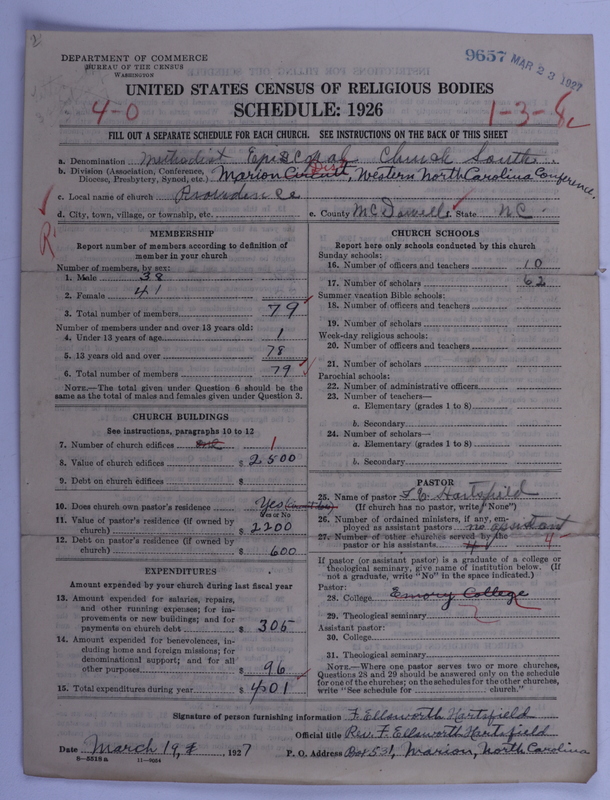 DEPARTMENT OF COMMERCE
BUREAU OF THE CENSUS
WASHINGTON
9657 MAR 23 1927
UNITED STATES CENSUS OF RELIGIOUS BODIES
SCHEDULE: 1926
4-0
1-3-8
FILL OUT A SEPARATE SCHEDULE FOR EACH CHURCH. SEE INSTRUCTIONS ON THE BACK OF THIS SHEET
a. Denomination Methodist Episcopal Church South
b. Division (Association, Conference, Diocese, Presbytery, Synod, etc.) Marion Circuit, Dist Western North Carolina Conference.
c. Local name of church Providence
d. City, town, village, or township, etc.
e. County McDowell State N.C.
MEMBERSHIP
Report number of members according to definition of
member in your church
Number of members, by sex:
1. Male 38
2. Female 41
3. Total number of members 79
Number of members under and over 13 years old:
4. Under 13 years of age 1
5. 13 years old and over 78
6. Total number of members 79
NOTE.—The total given under Question 6 should be the
same as the total of males and females given under Question 3.
CHURCH BUILDINGS
See instructions, paragraphs 10 to 12
7. Number of church edifices one 1
8. Value of church edifices $ 2500
9. Debt on church edifices $
10. Does church own pastor's residence Yes
Yes or No
11. Value of pastor's residence (if owned by
church) $ 2200
12. Debt on pastor's residence (if owned by
church) $ 600
EXPENDITURES
Amount expended by your church during last fiscal year
13. Amount expended for salaries, repairs,
and other running expenses; for im-
provements or new buildings; and for
payments on church debt $ 305
14. Amount expended for benevolences, in-
cluding home and foreign missions; for
denominational support; and for all
other purposes 96
15. Total expenditures during year $ 401
CHURCH SCHOOLS
Report here only schools conducted by this church
Sunday schools:
16. Number of officers and teachers 10
17. Number of scholars 62
Summer vacation Bible schools:
18. Number of officers and teachers
19. Number of scholars
Week-day religious schools:
20. Number of officers and teachers
21. Number of scholars
Parochial schools:
22. Number of administrative officers
23. Number of teachers—
a. Elementary (grades 1 to 8)
b. Secondary
24. Number of scholars—
a. Elementary (grades 1 to 8)
b. Secondary
PASTOR
25. Name of pastor F. E. Hartsfield
(If church has no pastor, write "None")
26. Number of ordained ministers, if any, em-
ployed as assistant pastors no assistant
27. Number of other churches served by the
pastor or his assistants 4 4
If pastor (or assistant pastor) is a graduate of a college or
theological seminary, give name of institution below. (If
not a graduate, write "No" in the space indicated.)
Pastor:
28. College Emory College
29. Theological seminary
Assistant pastor:
30. College
31. Theological seminary
NOTE.—Where one pastor serves two or more churches,
Questions 28 and 29 should be answered only on the schedule
for one of the churches; on the schedules for the other churches,
write "See schedule for church."
Signature of person furnishing information F. Ellsworth Hartsfield
Official title Rev. F. Ellsworth Hartsfield
Date March 19, 1927
P. O. Address Box 531, Marion, North Carolina
8—5518a 11—9054